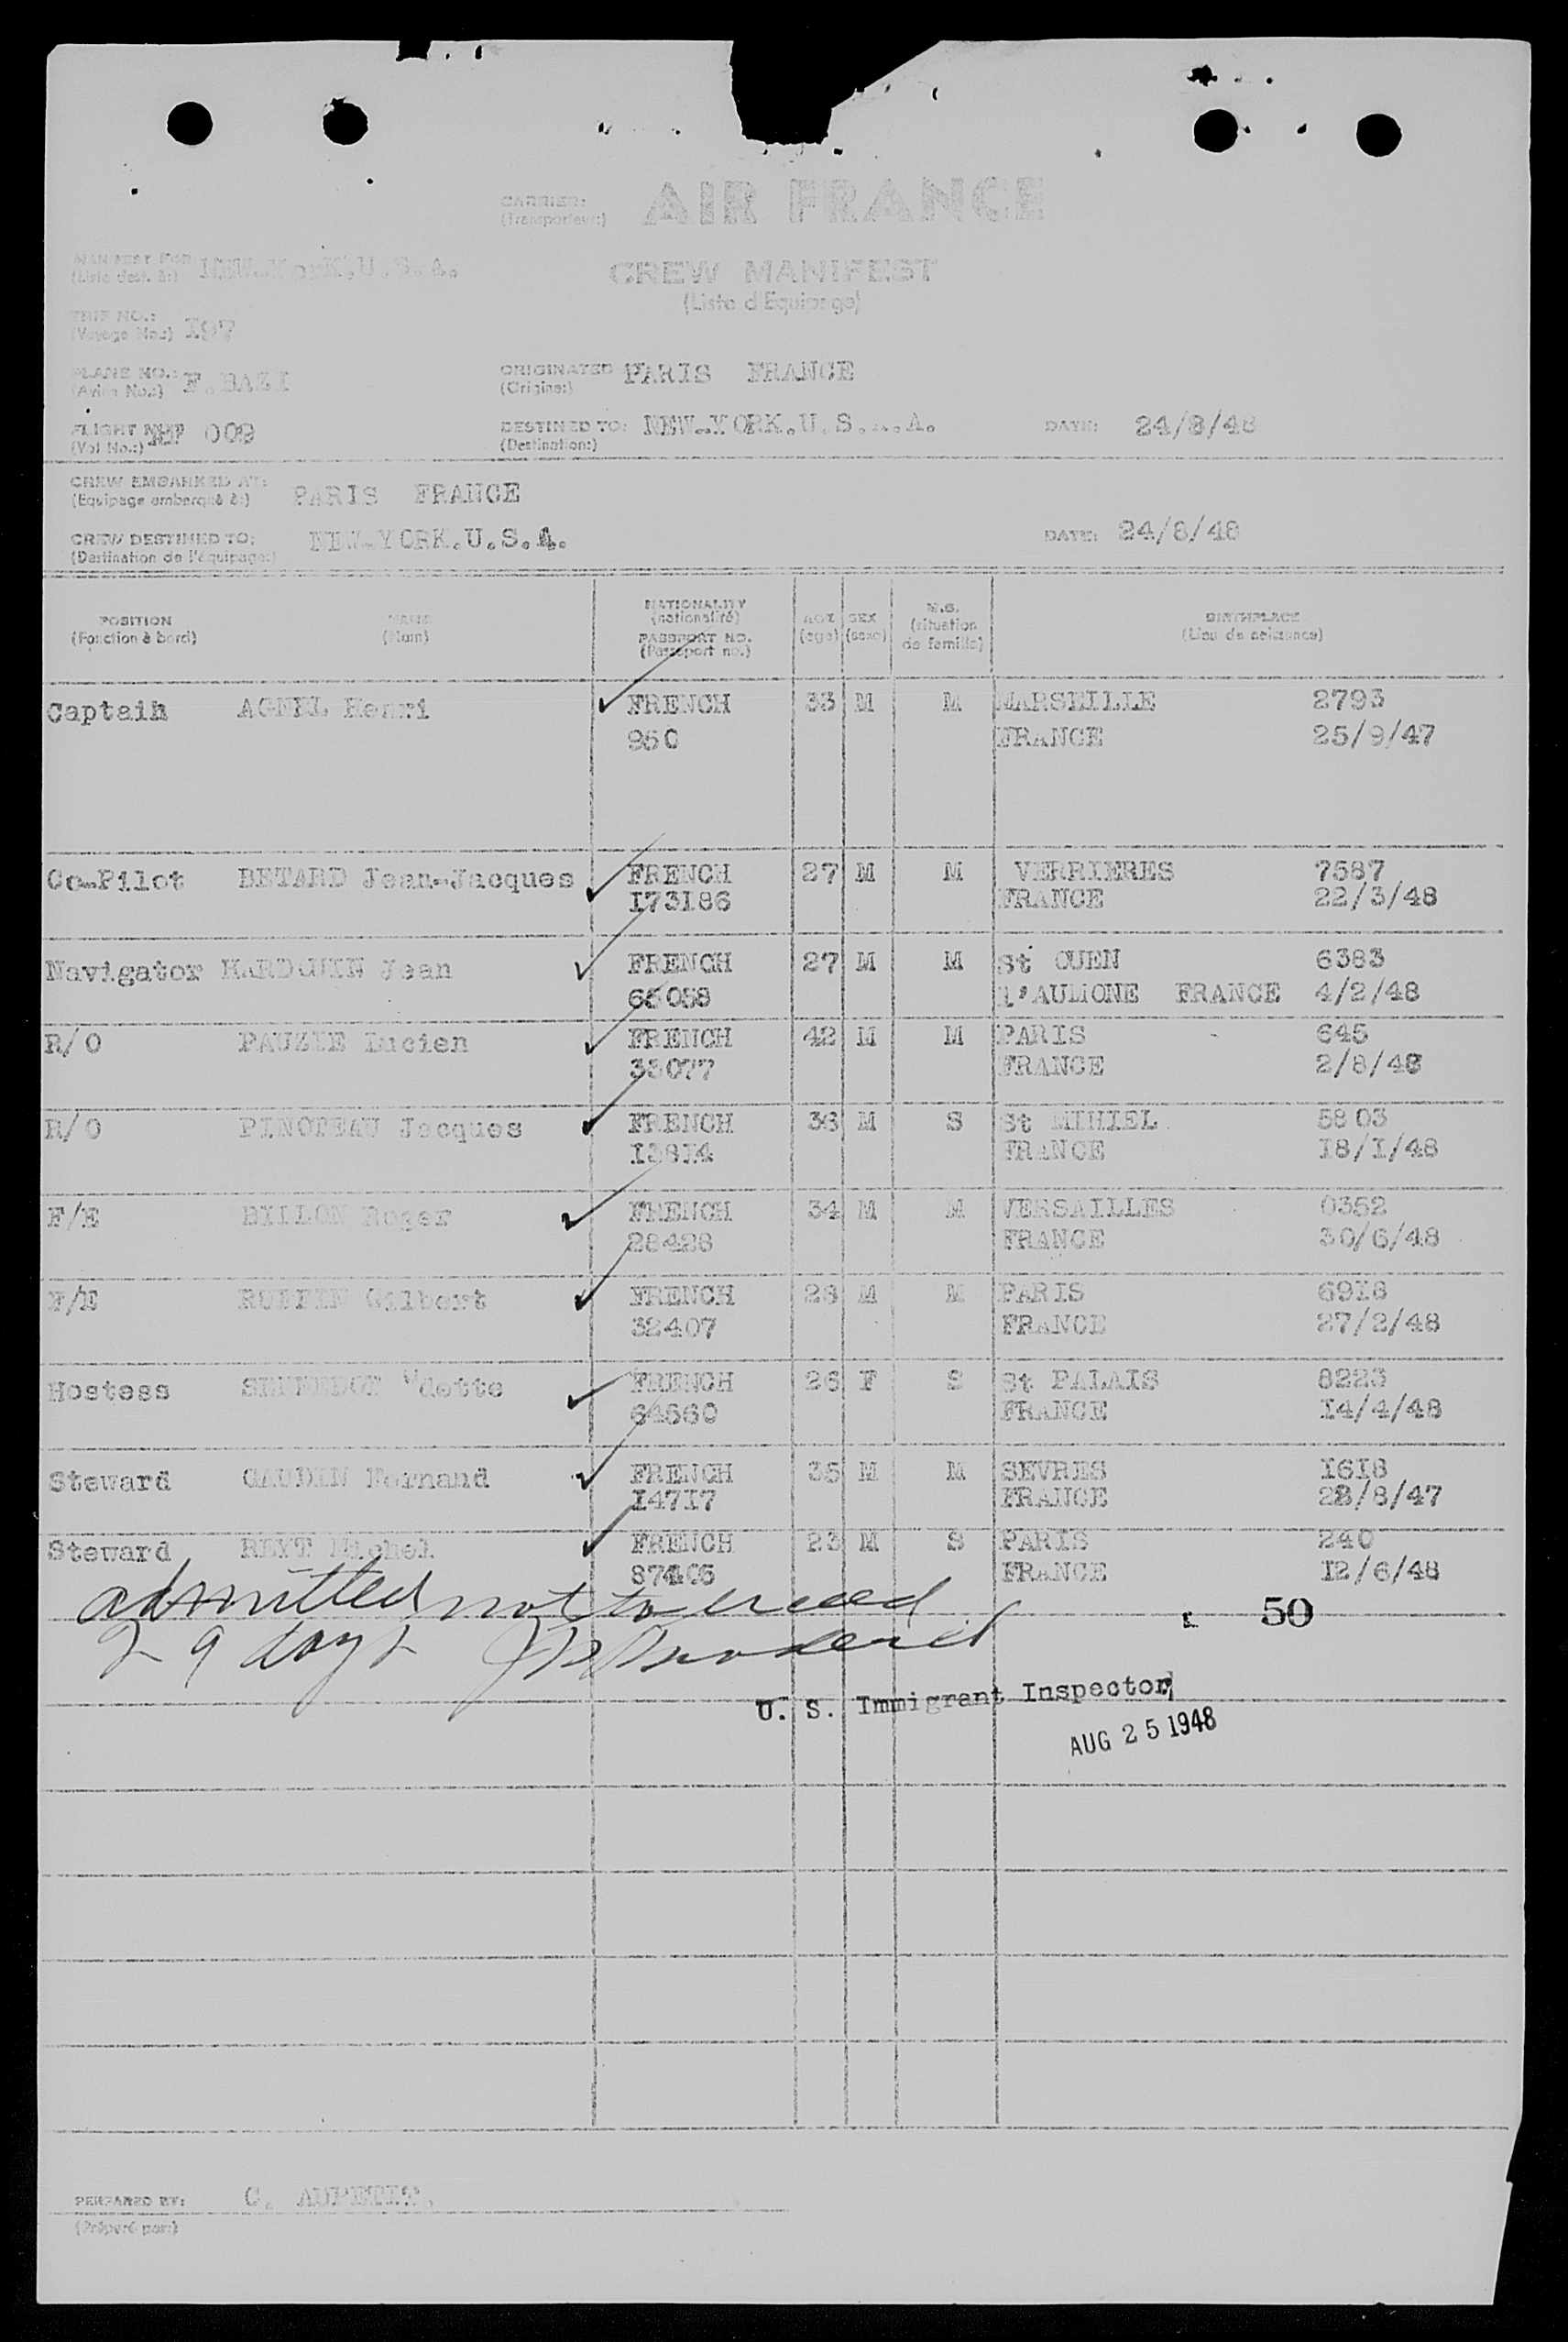 CARRIER: AIR FRANCE
(Transporteur:)
MANIFEST FOR NEW-YORK.U.S.A.
(Liste dest. à:)
CREW MANIFEST
(Liste d'Equipage)
TRIP NO.: 197
(Voyage No.:)
PLANE NO.: F.BAZI
(Avion No.:)
ORIGINATED PARIS FRANCE
(Origine:)
FLIGHT 009
(Vol No.:)
DESTINED TO: NEW-YORK.U.S.A.A. DATE: 24/8/48
(Destination:)
CREW EMBARKED AT: PARIS FRANCE
(Equipage embarqué à:)
CREW DESTINED TO: NEW-YORK.U.S.A. DATE: 24/8/48
(Destination de l'équipage:)
POSITION NAME NATIONALITY AGE SEX M.S. BIRTHPLACE
(Fonction à bord) (Nom) (nationalité) (age) (sexe) (situation de famille) (Lieu de naissance)
PASSPORT NO.
(Passeport no.)
Captain AGNEL Henri FRENCH 33 M M MARSEILLE 2793
950 FRANCE 25/9/47
Co-Pilot BETARD Jean-Jacques FRENCH 27 M M VERRIERES 7587
173186 FRANCE 22/3/48
Navigator HARDOUIN Jean FRENCH 27 M M St OUEN 6383
65058 l'AUMONE FRANCE 4/2/48
R/O PAUZIE Lucien FRENCH 42 M M PARIS 645
33077 FRANCE 2/8/48
R/O PINOTEAU Jacques FRENCH 36 M S St MIHIEL 5803
13814 FRANCE 18/1/48
F/E BILLON Roger FRENCH 34 M M VERSAILLES 0352
28428 FRANCE 30/6/48
F/E Gilbert FRENCH 28 M M PARIS 6918
32407 FRANCE 27/2/48
Hostess FRENCH 26 F S St PALAIS 8223
64560 FRANCE 14/4/48
Steward GAUDIN Fernand FRENCH 35 M M SEVRES 1618
14717 FRANCE 28/8/47
Steward REYT Michel FRENCH 23 M S PARIS 240
87405 FRANCE 12/6/48
admitted not to exceed
29 days
50
U. S. Immigrant Inspector
AUG 25 1948
PREPARED BY: C. AUPETIT.
(Préparé par:)